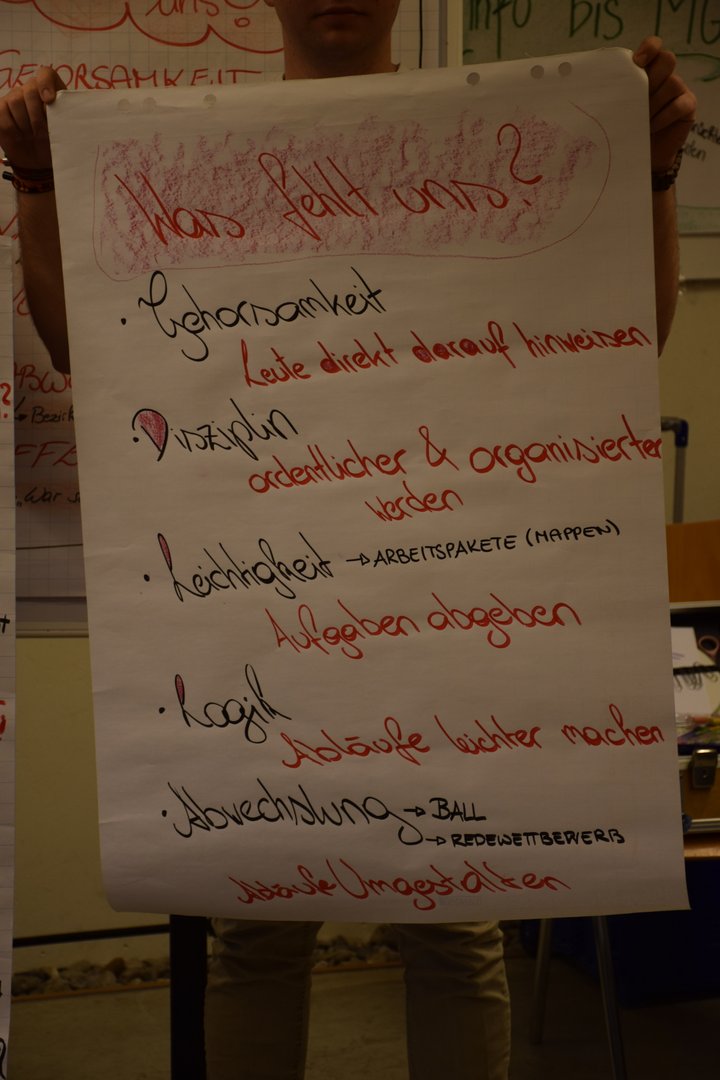 uns!
GEHORSAMKEIT
Info bis MG
Was fehlt uns?
· Gehorsamkeit
Leute direkt darauf hinweisen
· Disziplin
ordentlicher & organisierter
werden
· Leichtigkeit → ARBEITSPAKETE (MAPPEN)
Aufgaben abgeben
· Logik
Abläufe leichter machen
· Abwechslung → BALL
→ REDEWETTBEWERB
Abläufe Umgestalten
Bezirk